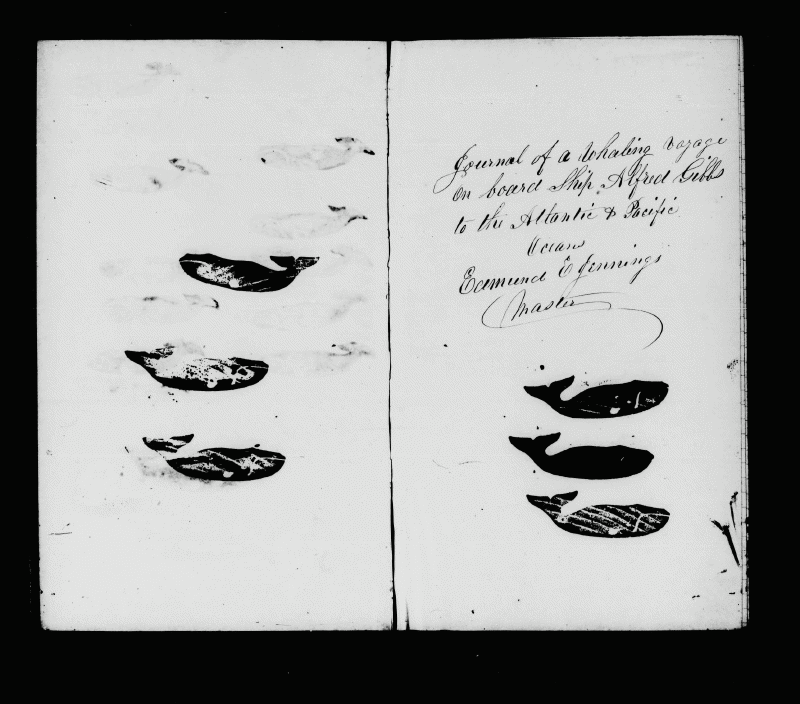 Journal of a Whaling Voyage
On board Ship Alfred Gibbs
to the Atlantic & Pacific
Oceans
Edmund E Jennings
Master